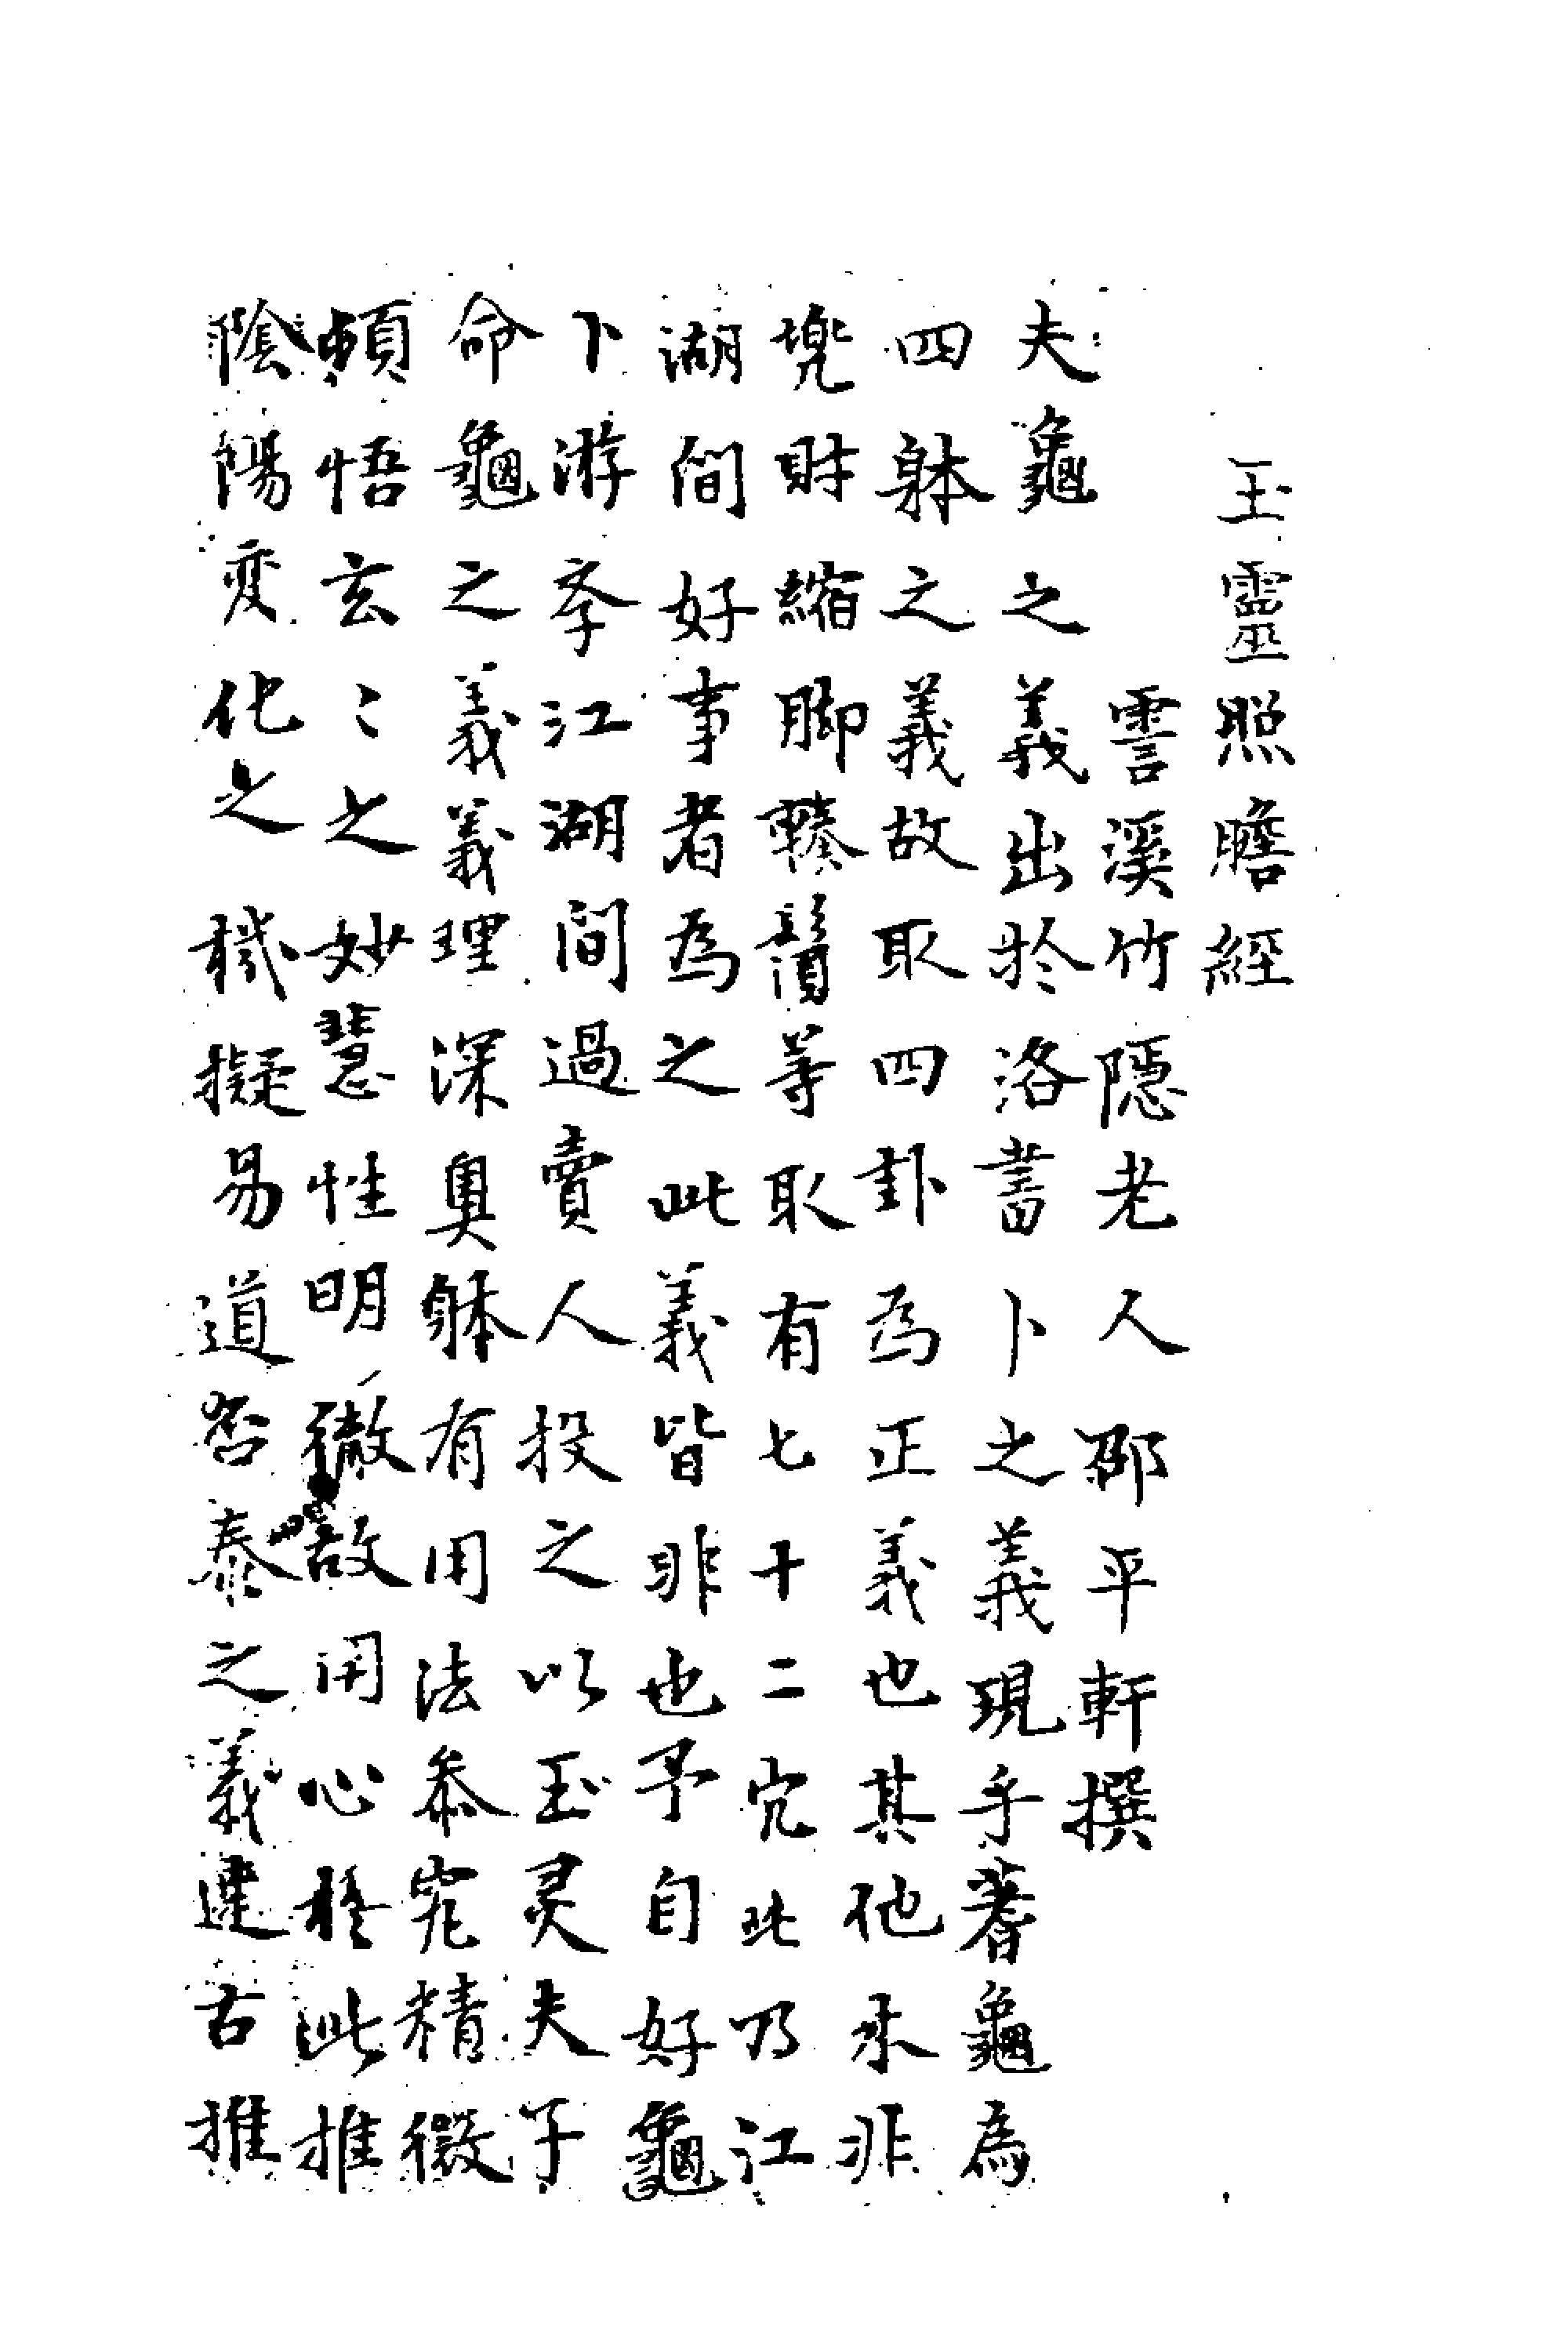 玉靈照瞻經
霅溪竹隱老人邵平軒撰
夫龜之義出於洛書卜之義現乎蓍龜為
四躰之義故取四卦為正義也其他未非
兠財縮脚鬚等取有七十二宂此乃江
湖間好事者為之此義皆非也予自好龜
卜游孝江湖間過賣人投之以玉灵夫子
命龜之義義理深奧躰有用法叅究精微
頓悟玄〻之妙慧性明徹故用心於此推
陰陽变化之機擬易道否泰之義遵古推